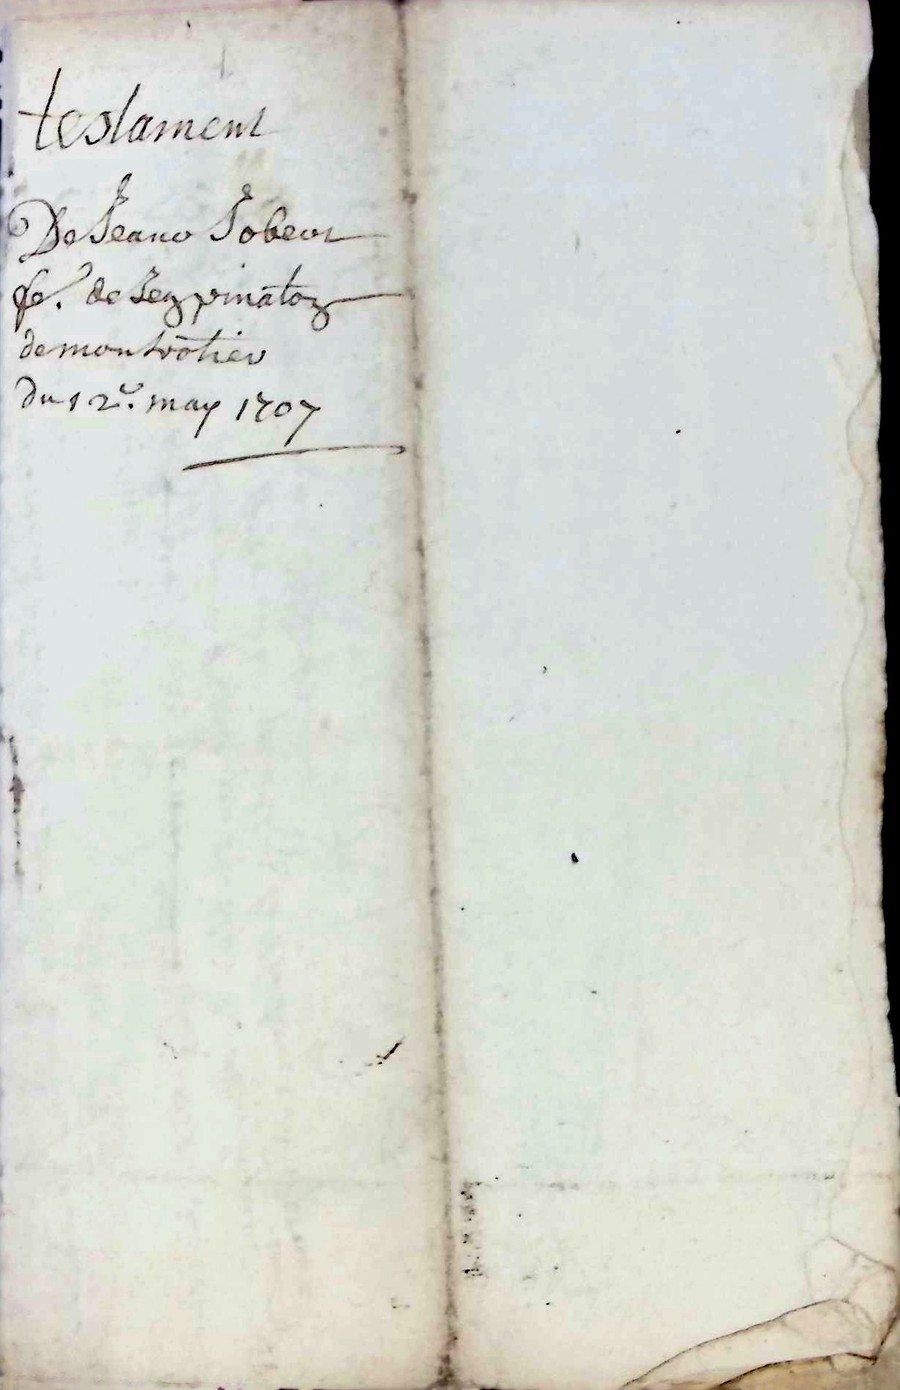 testament
De Jeane Jobert
fe. de Jey pinatoz
de montrotier
du 12e. may 1707